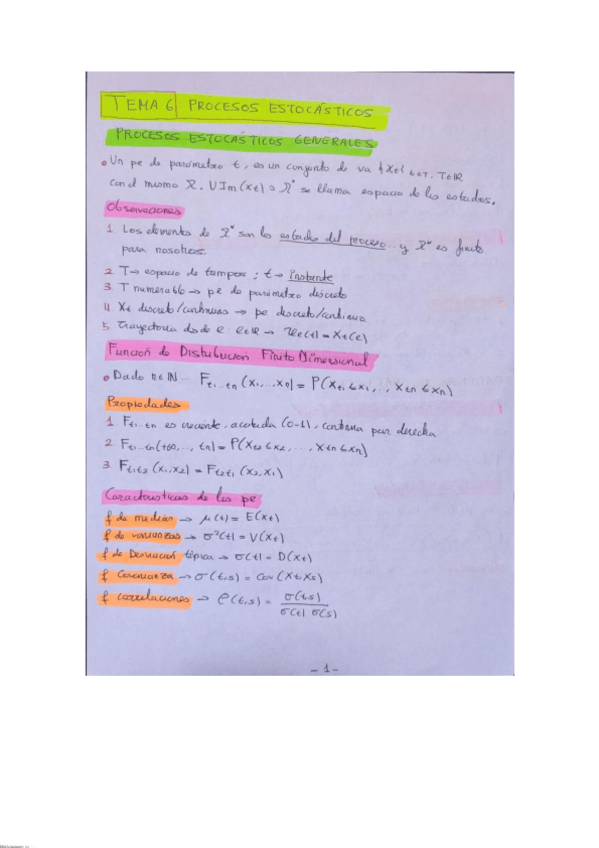 TEMA 6 PROCESOS ESTOCÁSTICOS
PROCESOS ESTOCÁSTICOS GENERALES
• Un pe de parámetro t, es un conjunto de va {Xt} t∈T, T∈IR
con el mismo Ω. U Im(Xt) = Ω* se llama espacio de los estados.
Observaciones
1. Los elementos de Ω* son los estados del proceso... y Ω* es finito
para nosotros.
2 T→ espacio de tiempos ; t→ instante
3 T numerable → pe de parámetro discreto
4. Xt discreto/continuas → pe discreto/continuo
5. Trayectoria dado e:
Función de Distribución Finito Dimensional
• Dado n∈IN... Ft1...tn (x1,...xn) = P(Xt1≤x1,.., Xtn≤xn)
Propiedades
1. Ft1...tn es creciente, acotada (0-1), continua por derecha
2. Ft1...tn(+∞,.., tn) = P(Xt2≤x2, ..., Xtn≤xn)
3. Ft1t2 (x1,x2) = Ft2t1 (x2,x1)
Características de los pe
f de medias → μ(t) = E(Xt)
f de varianzas → σ²(t) = V(Xt)
f de Desviación típica → σ(t) = D(Xt)
f Covarianza → σ(t,s) = Cov(Xt,Xs)
f correlaciones → ρ(t,s) = σ(t,s) / σ(t) σ(s)
- 1 -